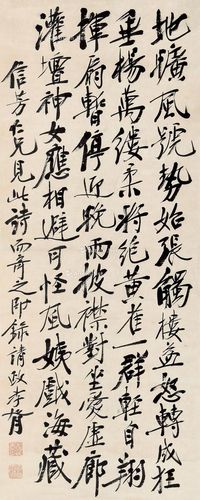 地曠風號勢始張觸樓益怒轉成狂
垂楊萬縷柔將絕黃雀一群輕自翔
揮扇暫停近晚雨披襟對坐愛虛廊
灌壇神女應相避可怪風姨戲海藏
信芳仁兄見此詩而奇之即錄請政孝胥